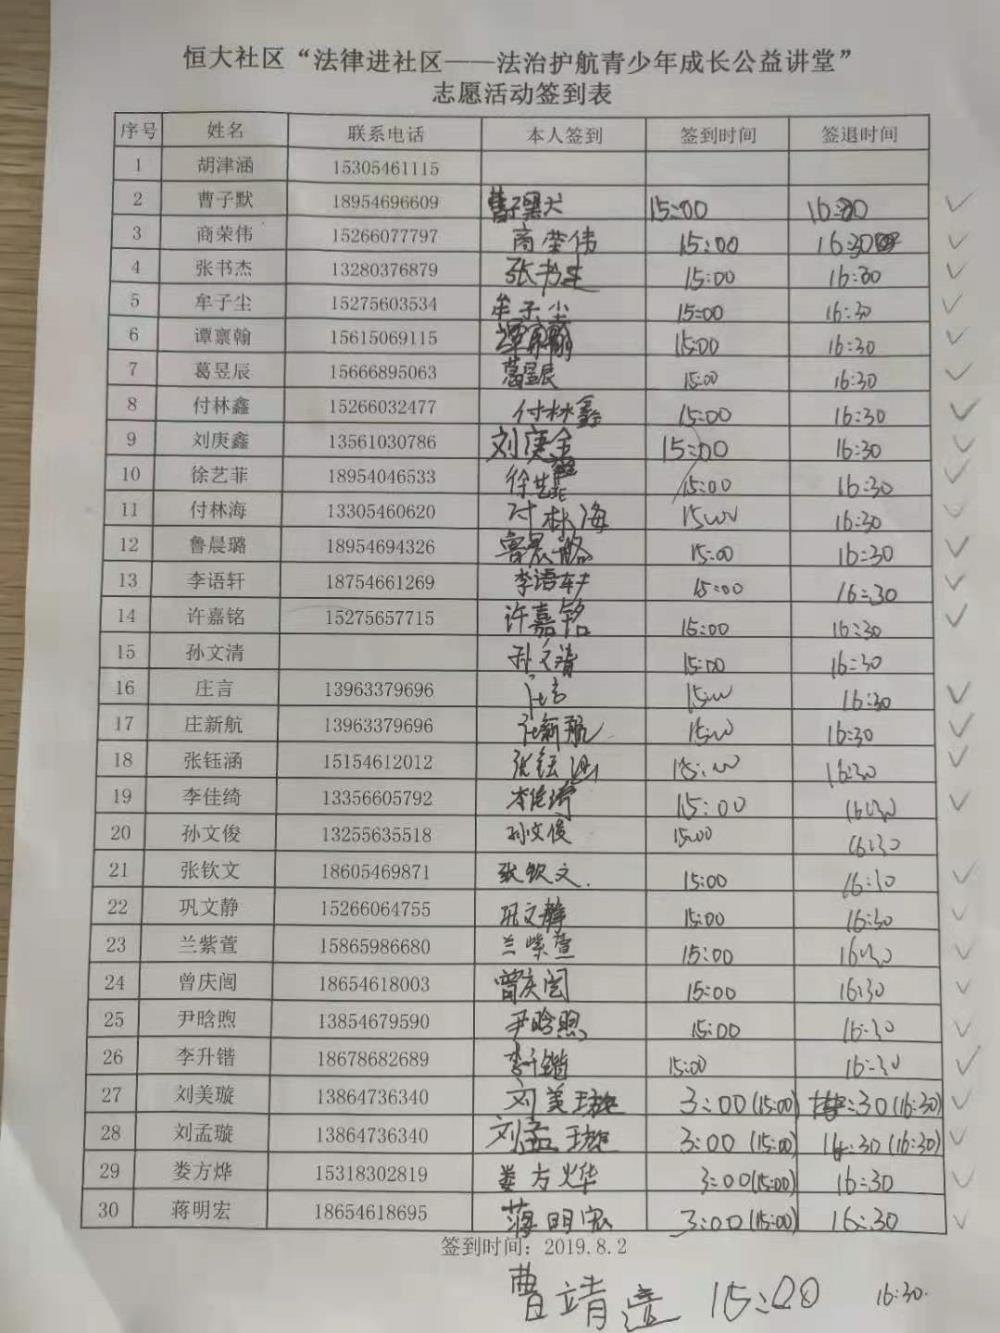 恒大社区“法律进社区——法治护航青少年成长公益讲堂”
志愿活动签到表
序号 姓名 联系电话 本人签到 签到时间 签退时间
1 胡津涵 15305461115
2 曹子默 18954696609 曹子默 15:00 16:30
3 商荣伟 15266077797 商荣伟 15:00 16:30
4 张书杰 13280376879 张书杰 15:00 16:30
5 牟子尘 15275603534 牟子尘 15:00 16:30
6 谭禀翰 15615069115 15:00 16:30
7 葛昱辰 15666895063 葛昱辰 15:00 16:30
8 付林鑫 15266032477 付林鑫 15:00 16:30
9 刘庚鑫 13561030786 刘庚鑫 15:00 16:30
10 徐艺菲 18954046533 徐艺菲 15:00 16:30
11 付林海 13305460620 付林海 15:00 16:30
12 鲁晨璐 18954694326 鲁晨璐 15:00 16:30
13 李语轩 18754661269 李语轩 15:00 16:30
14 许嘉铭 15275657715 许嘉铭 15:00 16:30
15 孙文清 孙文清 15:00 16:30
16 庄言 13963379696 庄言 15:00 16:30
17 庄新航 13963379696 庄新航 15:00 16:30
18 张钰涵 15154612012 张钰涵 15:00 16:30
19 李佳绮 13356605792 李佳绮 15:00 16:30
20 孙文俊 13255635518 孙文俊 15:00 16:30
21 张钦文 18605469871 张钦文. 15:00 16:30
22 巩文静 15266064755 巩文静 15:00 16:30
23 兰紫萱 15865986680 兰紫萱 15:00 16:30
24 曾庆闿 18654618003 曾庆闿 15:00 16:30
25 尹晗煦 13854679590 尹晗煦 15:00 16:30
26 李升锴 18678682689 李升锴 15:00 16:30
27 刘美璇 13864736340 刘美璇 3:00(15:00) :30(16:30)
28 刘孟璇 13864736340 刘孟璇 3:00(15:00) 4:30(16:30)
29 娄方烨 15318302819 娄方烨 3:00(15:00) 16:30
30 蒋明宏 18654618695 蒋明宏 3:00(15:00) 16:30
签到时间：2019.8.2
曹靖 15:00 16:30.